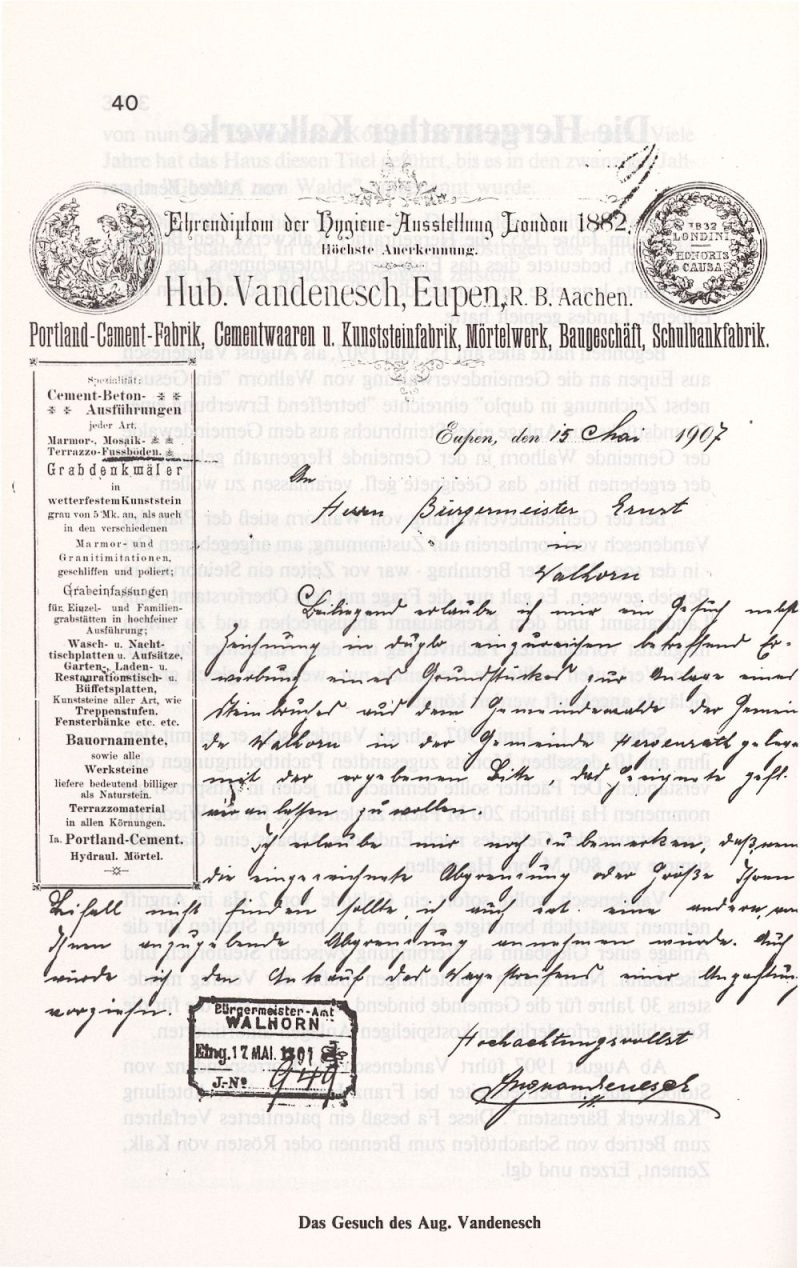 40
Ehrendiplom der Hygiene-Ausstellung London 1882.
Höchste Anerkennung.
1832
LONDINI
HONORIS
CAUSA
Hub. Vandenesch, Eupen, R. B. Aachen.
Portland-Cement-Fabrik, Cementwaaren u. Kunststeinfabrik, Mörtelwerk, Baugeschäft, Schulbankfabrik.
Spezialität:
Cement-Beton-
Ausführungen
jeder Art.
Marmor-, Mosaik-
Terrazzo-Fussböden.
Grabdenkmäler
in
wetterfestem Kunststein
grau von 5 Mk. an, als auch
in den verschiedenen
Marmor- und
Granitimitationen,
geschliffen und poliert;
Grabeinfassungen
für Einzel- und Familien-
grabstätten in hochfeiner
Ausführung;
Wasch- u. Nacht-
tischplatten u. Aufsätze,
Garten-, Laden- u.
Restaurationstisch- u.
Büffetsplatten,
Kunststeine aller Art, wie
Treppenstufen,
Fensterbänke etc. etc.
Bauornamente,
sowie alle
Werksteine
liefere bedeutend billiger
als Naturstein.
Terrazzomaterial
in allen Körnungen.
Ia. Portland-Cement.
Hydraul. Mörtel.
Eupen, den 15 Mai 1907
An
Herrn Bürgermeister Ernst
in
Walhorn
Beiliegend erlaube ich mir ein Gesuch nebst
Zeichnung in duplo einzureichen betreffend Er-
werbung eines Grundstückes zur Anlage eines
Steinbruches aus dem Gemeindewalde der Gemein
de Walhorn in der Gemeinde Hergenrath gelege
mit der ergebenen Bitte, das Geeignete gefl.
lassen zu wollen.
Ich erlaube mir noch zu bemerken, daß, wen
die eingezeichnete Abgrenzung oder Größe Ihren
Beifall nicht finden sollte, ich auch eine andere, von
Ihnen anzugebende Abgrenzung annehmen würde. Auch
würde ich den Ankauf des Wegestreifens einer Anpachtung
vorziehen.
Hochachtungsvollst
Aug. Vandenesch
Bürgermeister-Amt
WALHORN
Eing. 17 MAI. 1907
J.-No 949
Das Gesuch des Aug. Vandenesch